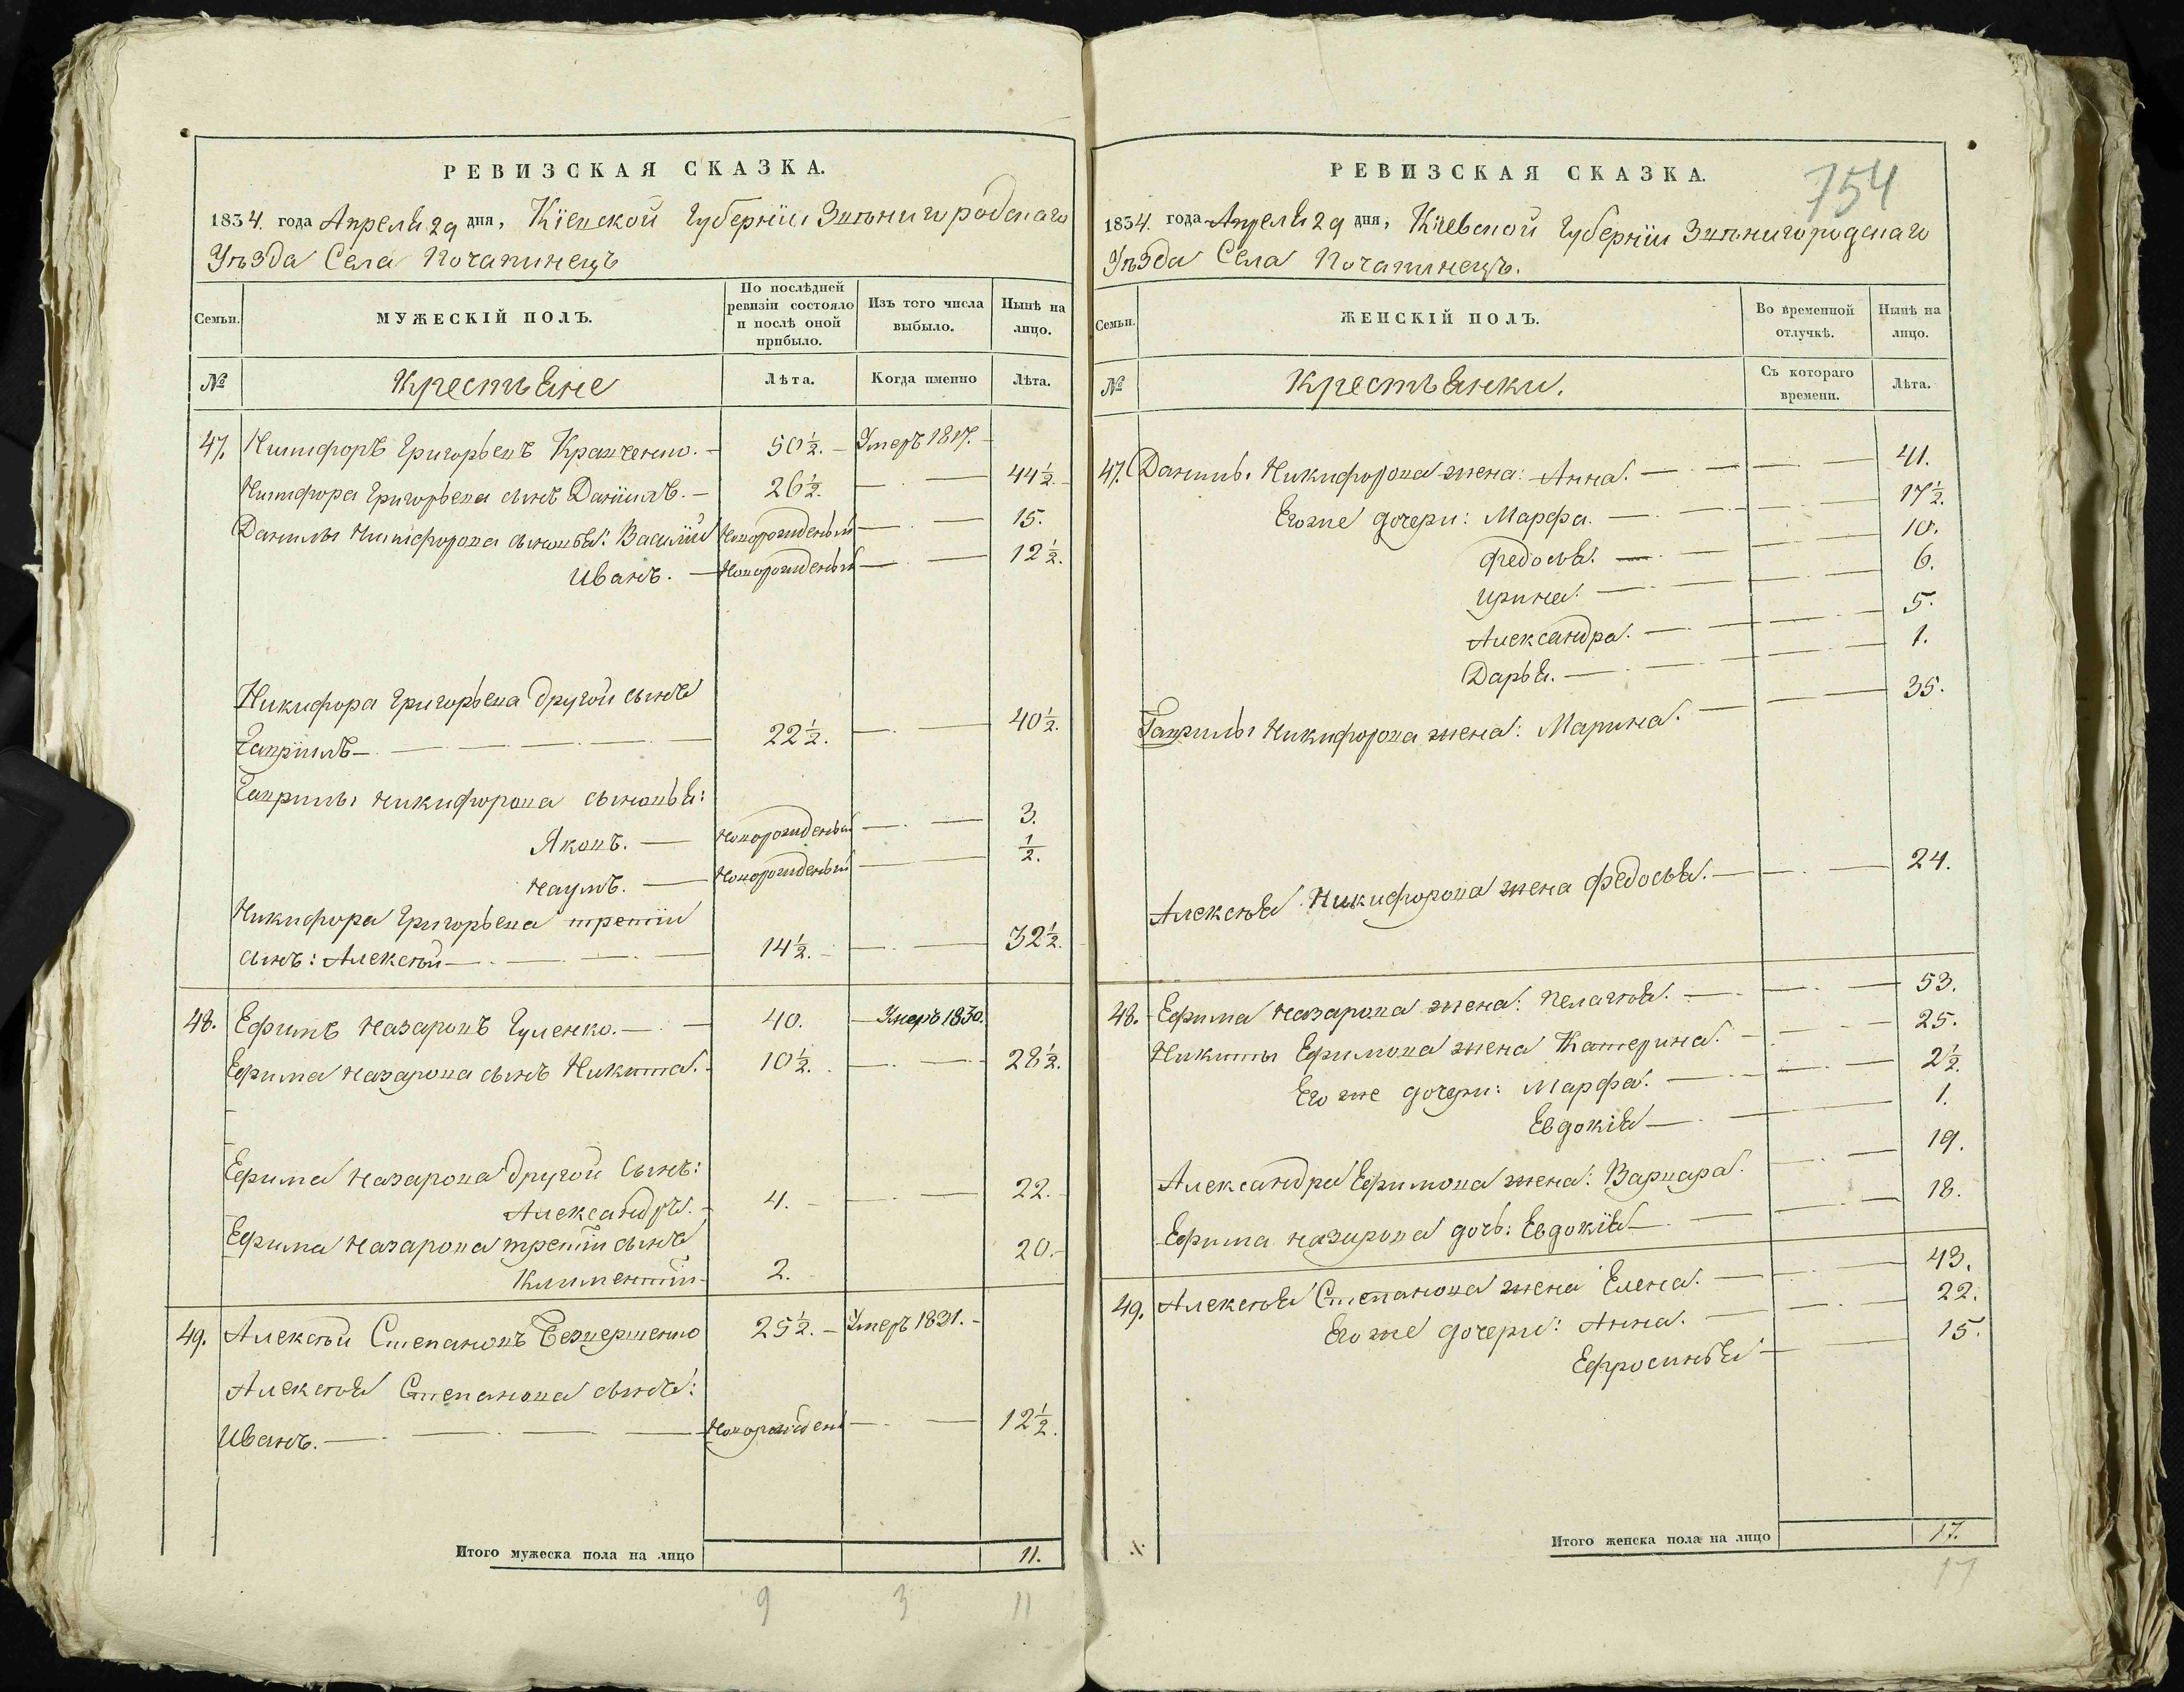 РЕВИЗСКАЯ СКАЗКА.
1834. года Апреля 29 дня, Кіевской Губерніи Звѣнигородскаго
Уѣзда Села Почапинецъ
Семьи.
МУЖЕСКІЙ ПОЛЪ.
По послѣдней ревизіи состояло и послѣ оной прибыло.
Изъ того числа выбыло.
Нынѣ на лицо.
№
Крестьяне
Лѣта.
Когда именно
Лѣта.
47. Никифоръ Григорьевъ Кравченко. 50½. Умеръ 1817.
Никифора Григорьева сынъ Даніилъ. 26½. 44½.
Данилы Никифорова сыновья: Василій Новорожденый 15.
Иванъ. Новорожденый 12½.
Никифора Григорьева другой сынъ
Гавріилъ 22½. 40½.
Гаврилы Никифорова сыновья:
Яковъ. Новорожденый 3.
Наумъ. Новорожденый ½.
Никифора Григорьева третій
сынъ: Алексѣй 14½. 32½.
48. Ефимъ Назаровъ Гуленко. 40. Умеръ 1830.
Ефима Назарова сынъ Никита. 10½. 28½.
Ефима Назарова другой Сынъ:
Александръ. 4. 22.
Ефима Назарова третій сынъ
Климентій 2. 20.
49. Алексѣй Степановъ Безвершенко 25½. Умеръ 1831.
Алексѣя Степанова сынъ:
Иванъ. Новорожден 12½.
Итого мужеска пола на лицо 11.
9 3 11
РЕВИЗСКАЯ СКАЗКА.
754
1834. года Апреля 29 дня, Кіевской Губерніи Звѣнигородскаго
Уѣзда Села Почапинецъ.
Семьи.
ЖЕНСКІЙ ПОЛЪ.
Во временной отлучкѣ.
Нынѣ на лицо.
№
Крестьянки.
Съ котораго времени.
Лѣта.
47. Данилы Никифорова жена: Анна. 41.
Егоже дочери: Марфа. 17½.
Федосья. 10.
Ирина. 6.
Александра. 5.
Дарья. 1.
Гаврилы Никифорова жена: Марина. 35.
Алексѣя Никифорова жена Федосья. 24.
48. Ефима Назарова жена: Пелагѣя. 53.
Никиты Ефимова жена Катерина. 25.
Его же дочери: Марфа. 2½.
Евдокія 1.
Александра Ефимова жена: Варвара. 19.
Ефима Назарова дочь: Евдокія 18.
49. Алексѣя Степанова жена Елена. 43.
Его же дочери: Анна. 22.
Ефросинья 15.
Итого женска пола на лицо 17.
17